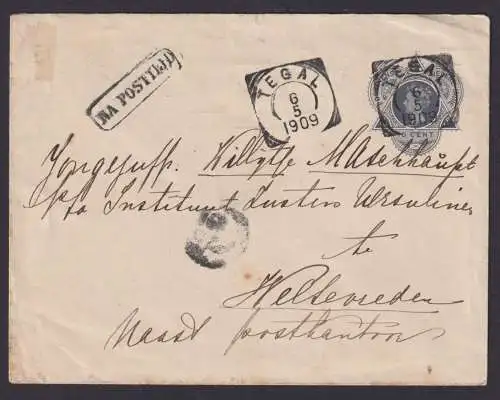 NA POSTTIJD
TEGAL
6
5
1909
TEGAL
6
5
1909
CENT
Willytje
p/a Instituut Zusters Ursuline
te
Weltevreden
Naast postkantoor